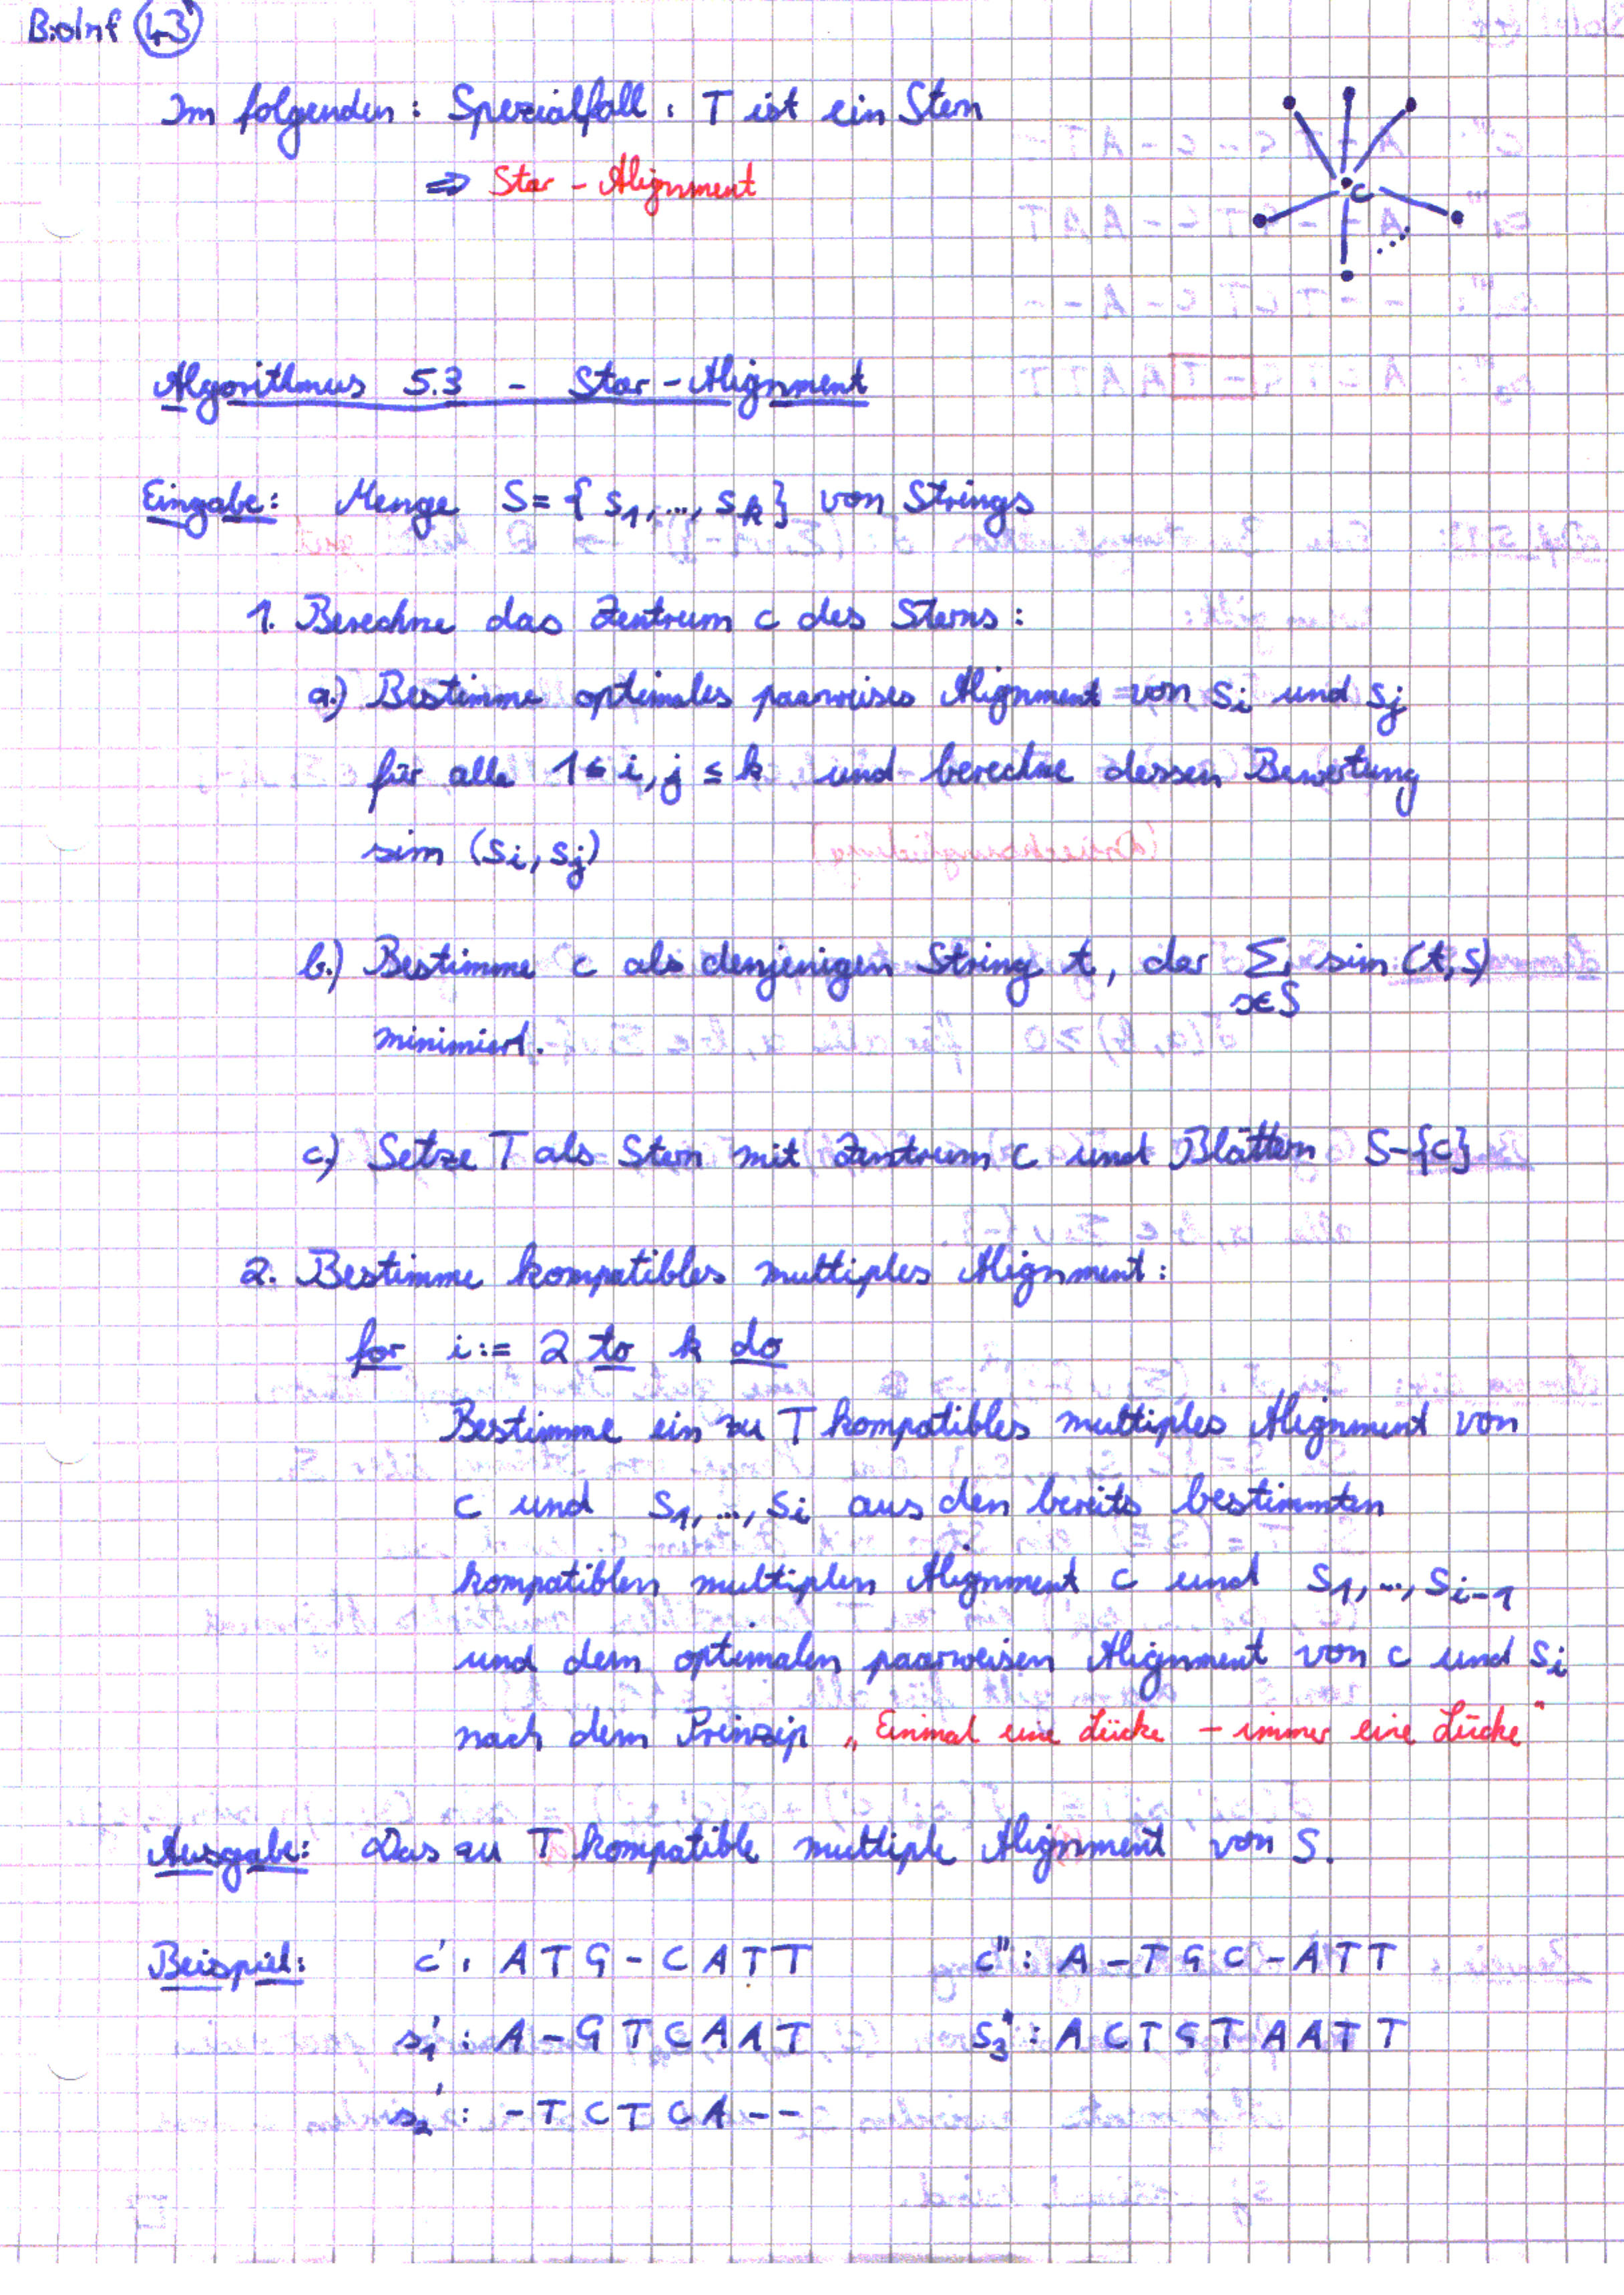 BioInf 43
Im folgenden: Spezialfall: T ist ein Stern
⇒ Star-Alignment
c
Algorithmus 5.3 - Star-Alignment
Eingabe: Menge S = { s1, ..., sk } von Strings
1. Berechne das Zentrum c des Sterns:
a.) Bestimme optimales paarweises Alignment von si und sj
für alle 1 ≤ i, j ≤ k und berechne dessen Bewertung
sim (si, sj)
b.) Bestimme c als denjenigen String t, der Σ sim (t, s)
s∈S
minimiert.
c.) Setze T als Stern mit Zentrum c und Blättern S-{c}
2. Bestimme kompatibles multiples Alignment:
for i := 2 to k do
Bestimme ein zu T kompatibles multiples Alignment von
c und s1, ..., si aus den bereits bestimmten
kompatiblen multiplen Alignment c und s1, ..., si-1
und dem optimalen paarweisen Alignment von c und si
nach dem Prinzip „Einmal eine Lücke - immer eine Lücke"
Ausgabe: Das zu T kompatible multiple Alignment von S.
Beispiel: c': A T G - C A T T c'': A - T G C - A T T
s1': A - G T C A A T s3': A C T G T A A T T
s2': - T C T C A - -